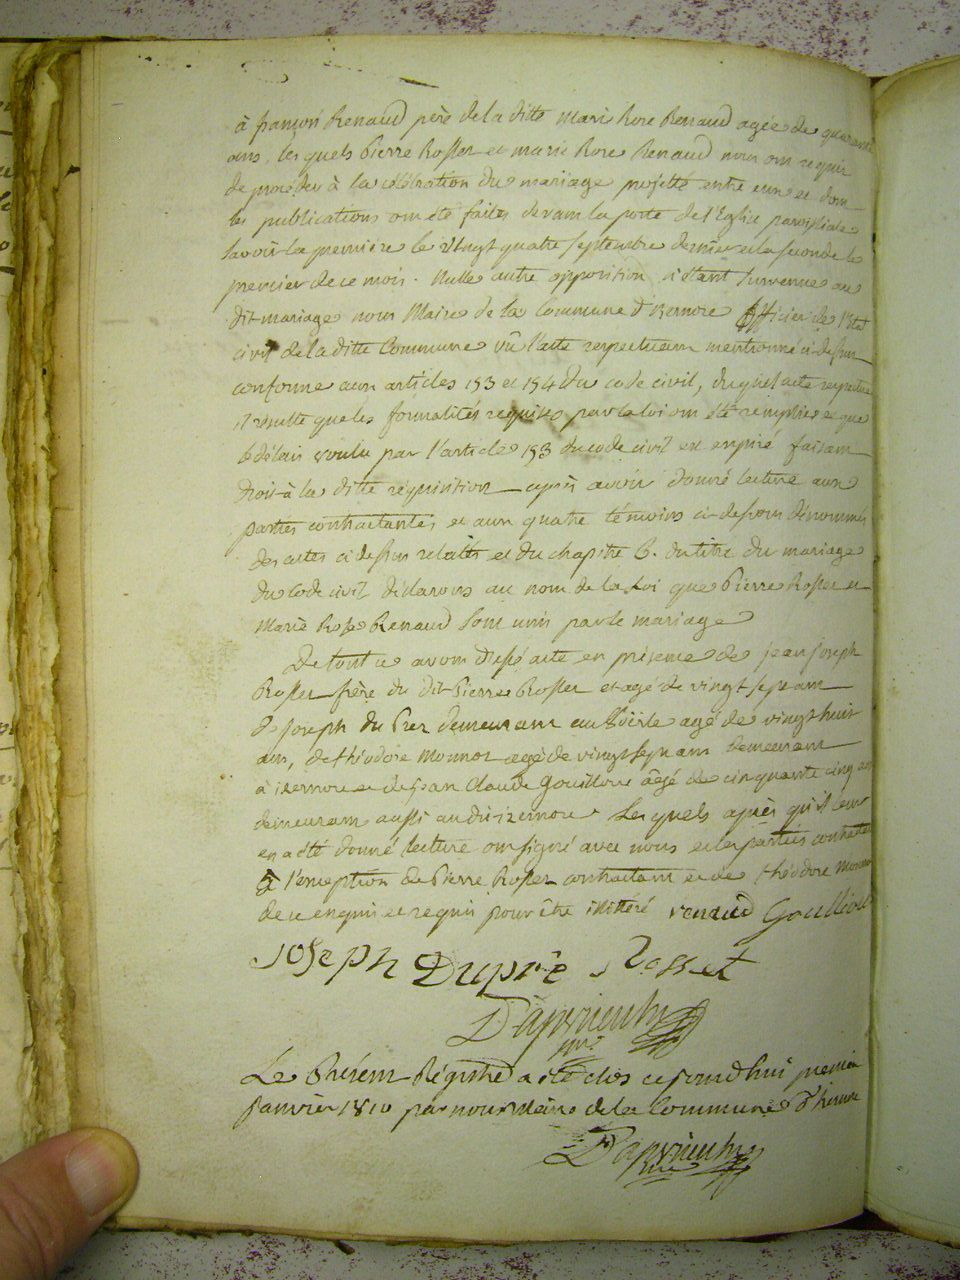 à françois Renaud père de la ditte Marie Rose Renaud agée de quarante
ans, les quels Pierre Rosset et marie Rose Renaud nous ont requis
de procéder à la célébration du mariage projetté entre eux et dont
les publications ont été faites devant la porte de l'Eglise paroissiale
savoir la première le vingt quatre septembre dernier et la seconde le
premier de ce mois. Nulle autre opposition n'étant survenue au
dit mariage nous Maire de la Commune d'Izernore Officier de l'Etat
civil de la ditte Commune vû l'acte respectueux mentionné ci-dessus
conforme aux articles 153 et 154 du code civil, duquel acte respectueux
il résulte que les formalités requises par la loi ont été remplies et que
le délais voulu par l'article 153 du code civil est expiré faisant
droit à la ditte réquisition après avoir donné lecture aux
parties contractantes et aux quatre témoins ci-dessous dénommés
des actes ci dessus relatés et du chapitre 6. du titre du mariage
du Code civil déclarons au nom de la Loi que Pierre Rosset et
Marie Rose Renaud sont unis par le mariage
De tout ce avons dressé acte en présence de jean joseph
Rosset frère du dit Pierre Rosset et agé de vingt sept ans
de joseph du Prez demeurant au agé de vingt huit
ans, de théodore Monnot agé de vingt sept ans demeurant
à izernore et de jean Claude Gouilloux âgé de cinquante cinq ans
demeurant aussi au dit izernore. Les quels après qu'il leur
en a été donné lecture ont signé avec nous et les parties contractantes
à l'exception de Pierre Rosset contractant et de théodore Monnot
de ce enquis et requis pour être illitéré renaud Gouilloux
Joseph Dupré Rosset
Le Présent Régistre a été clos ce jourd'hui premier
janvier 1810 par nous Maire de la Commune d'Izernore